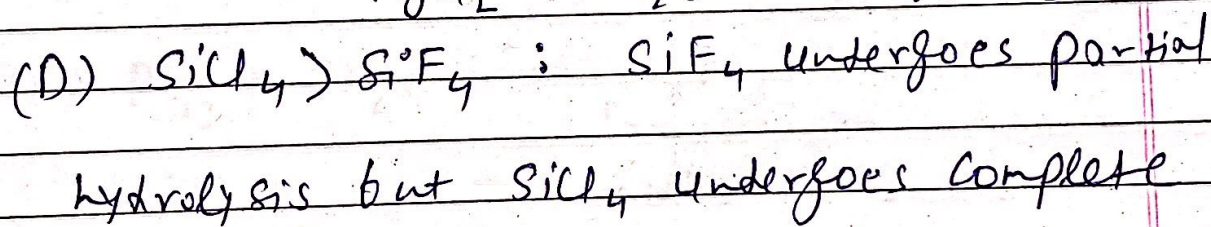 (D) SiCl4 > SiF4 : SiF4 undergoes partial
hydrolysis but SiCl4 undergoes complete